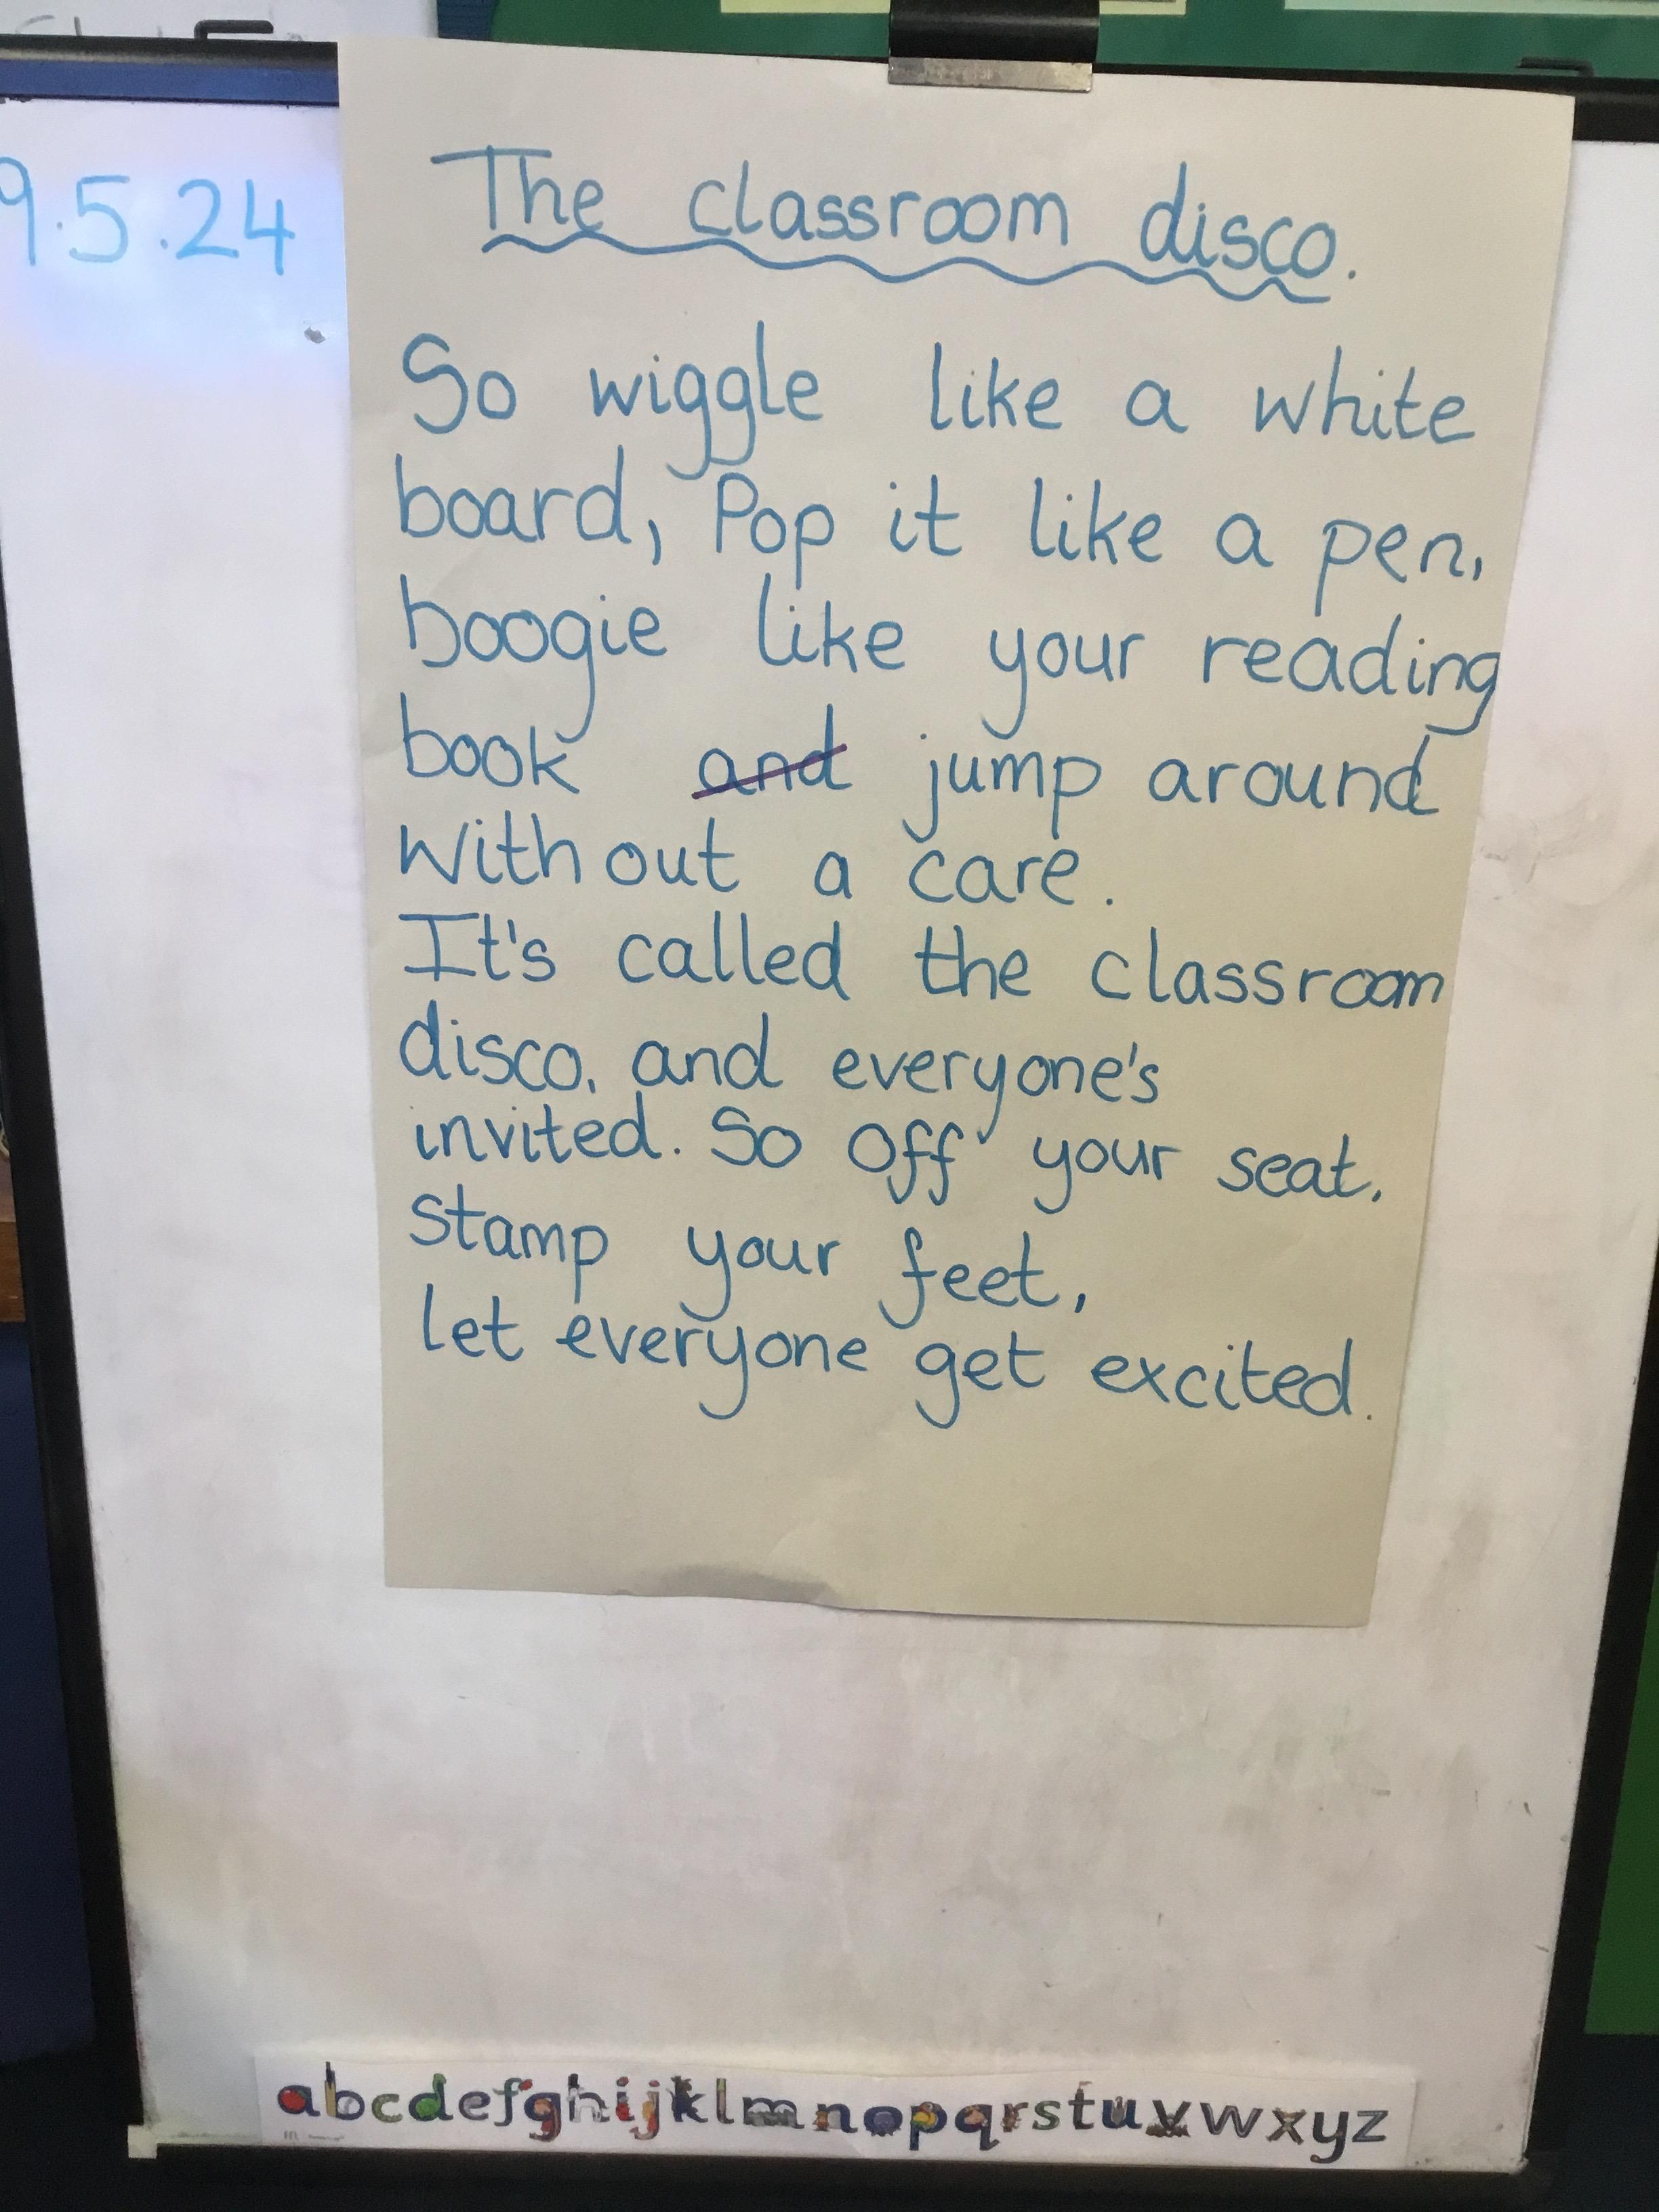 9.5.24
The classroom disco.
So wiggle like a white
board, Pop it like a pen,
boogie like your reading
book and jump around
without a care.
It's called the classroom
disco, and everyone's
invited. So off your seat,
stamp your feet,
let everyone get excited.
abcdefghijklmnopqrstuvwxyz